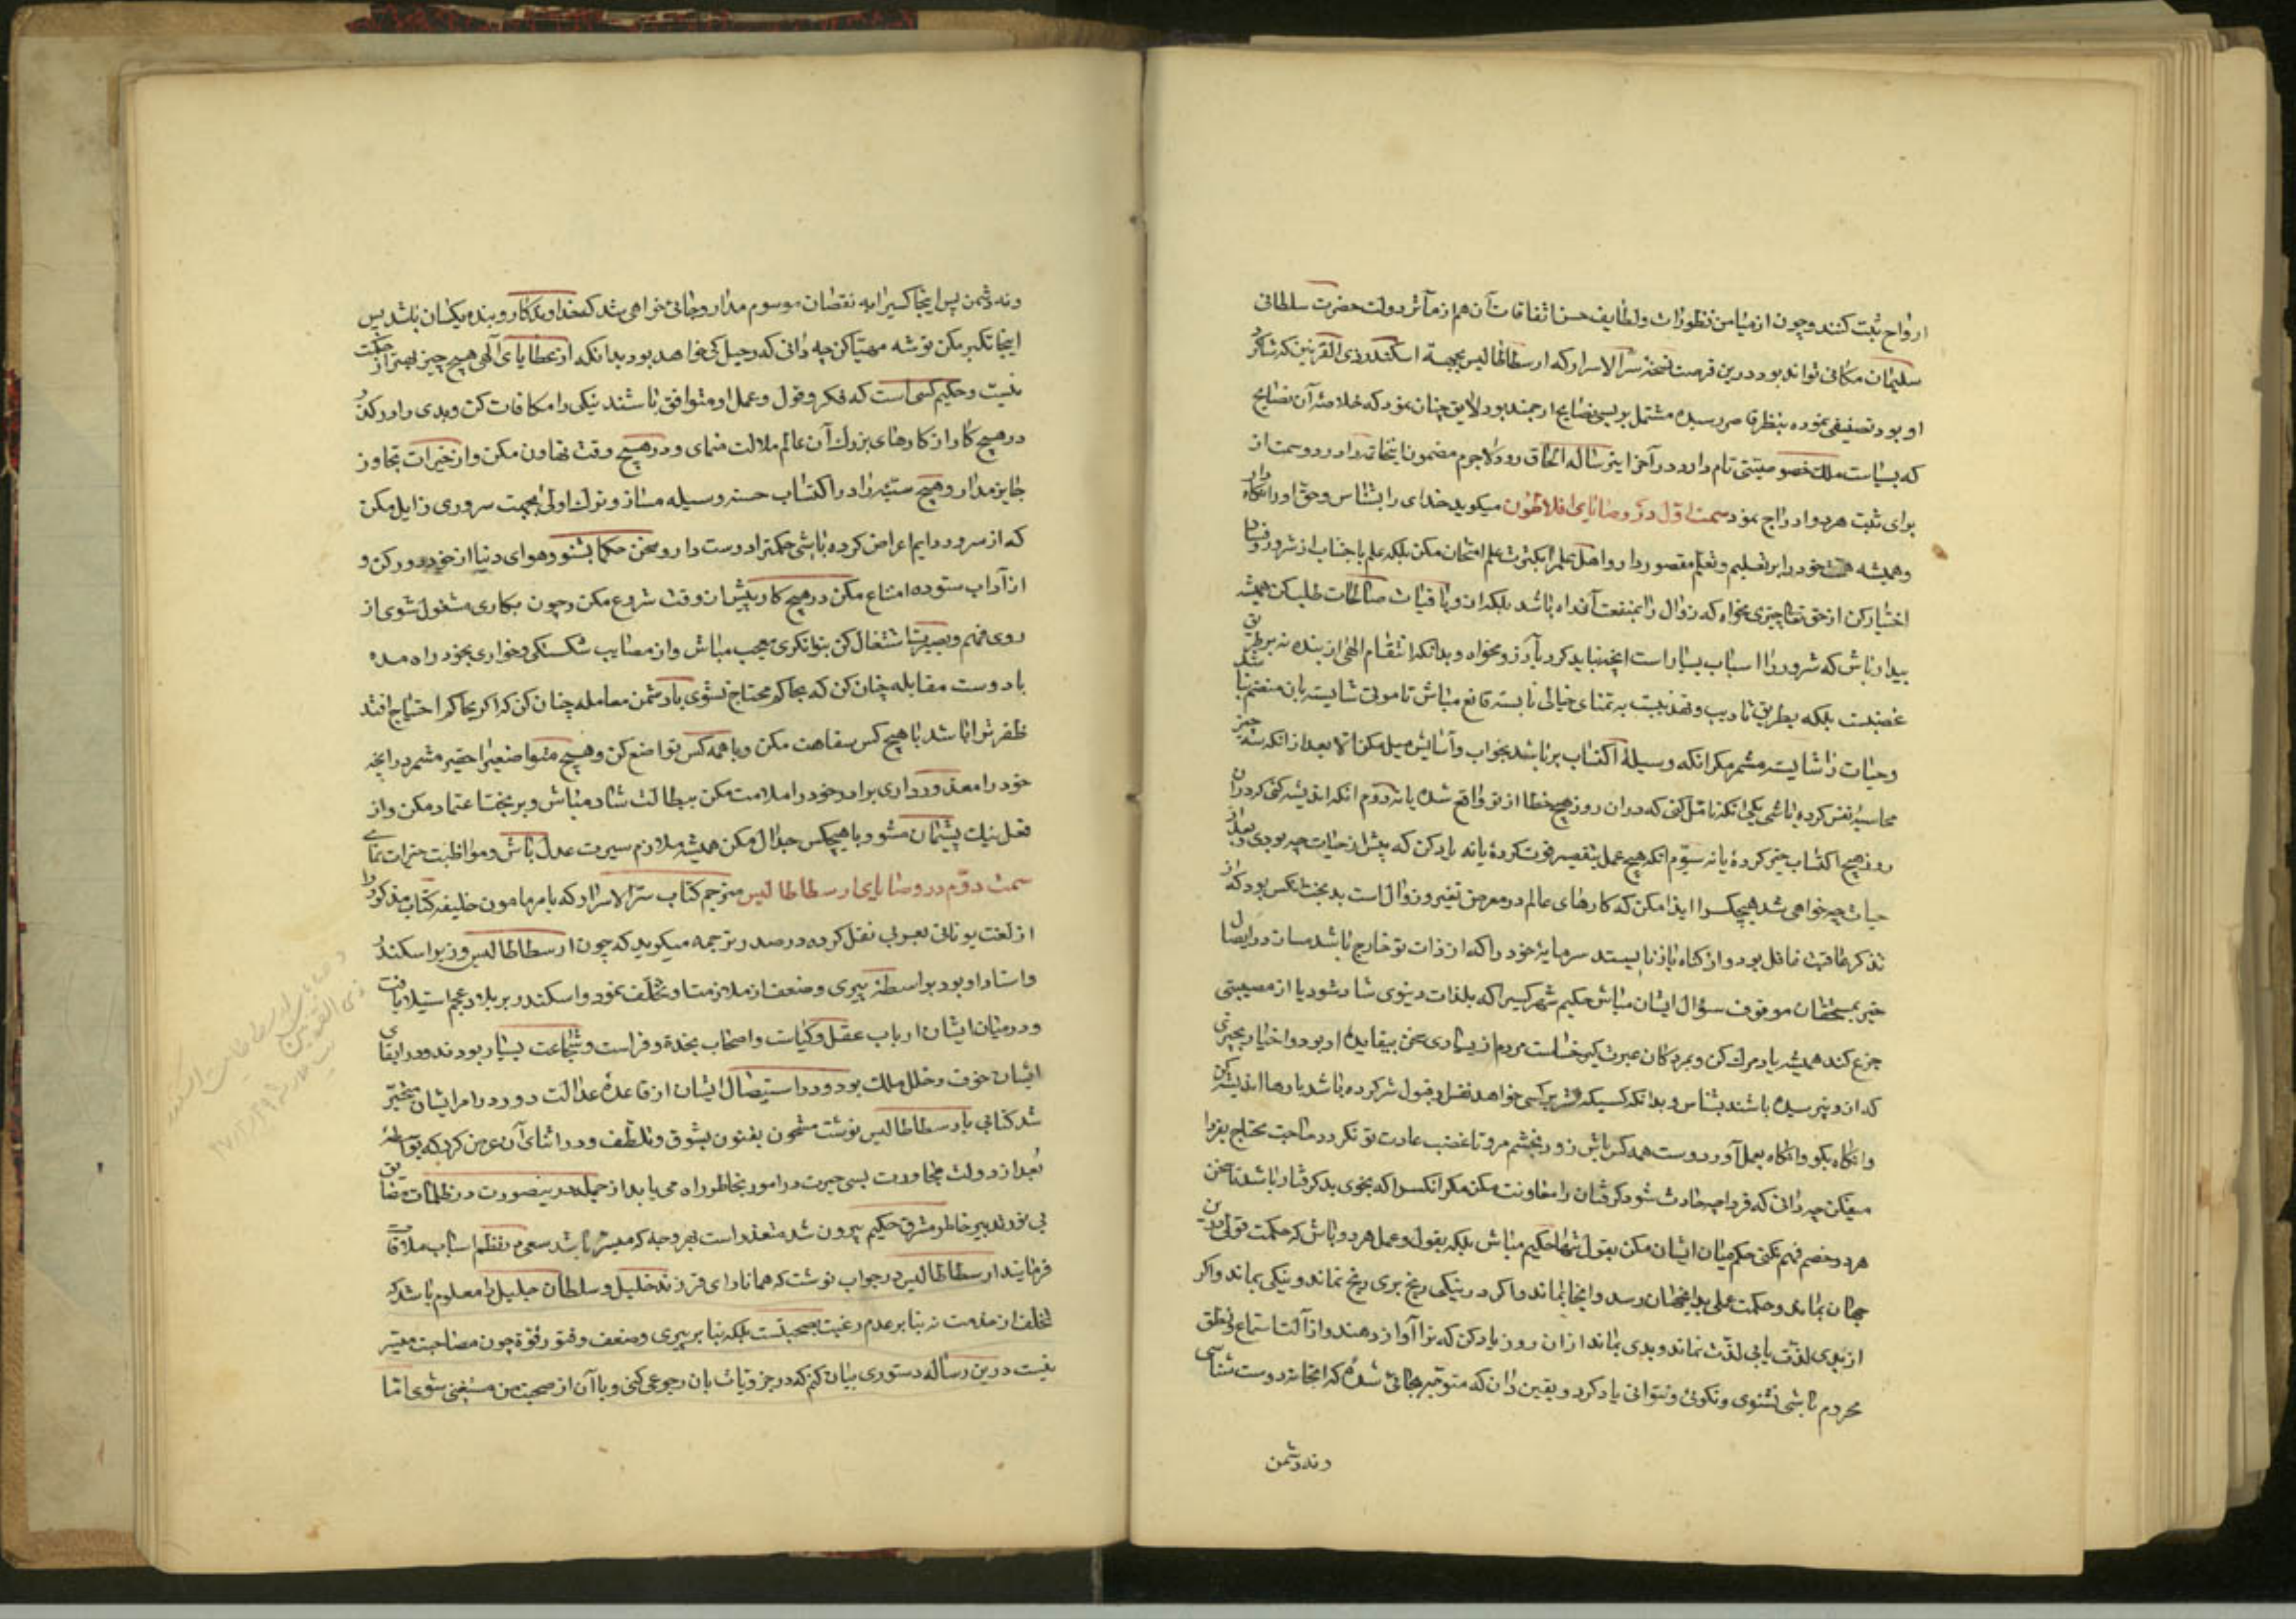 ارواح ثبت کنند و چون از میامن نظورات و لطایف حسن اتفاقات آن هم از مآثر دولت حضرت سلطانی
سلیمان مکانی تواند بود درین فرصت نسخه سر الاسرار که ارسطاطالیس بجهة اسکندر ذی القرنین که شاکرد
او بود تصنیفی نموده بنظر قاصر رسیده مشتمل بر بسی نصایح ارجمند بود لایق چنان نمود که خلاصهٔ آن نصایح
که بسیاست ملک خصوصیتی تام دارد در آخر این رساله الحاق رود لاجرم مضمون اینخاتمه را در دو سمت از
برای ثبت هر دو ادراج نمود سمت اول در وصایای افلاطون میکوید خدای را بشناس و حق او را نکاه دار
و همیشه همت خود را بر تعلیم و تعلم مقصور دار و اهل علم را بکثرت علم امتحان مکن بلکه علم با جتناب از شر و فساد
اختیار کن از حق تعالی چیزی مخواه که زوال را بمنفعت آن راه باشد بلکه از و باقیات صالحات طلب کن همیشه
بیدار باش که شرور را اسباب بسیار است آنچه نباید کرد بآرزو مخواه و بدانکه انتقام الهی از بنده نه بر طریق
غضبست بلکه بطریق تادیب و تهذیبست به تمنای حیاتی نابسته قانع مباش تا موتی شایسته بان منضم نباشد
و حیات را شایسته مشمر مکر انکه وسیلهٔ اکتساب بر باشد بخواب و آسایش میل مکن الا بعد از انکه سه چیز
محاسبهٔ نفس کرده باشی یکی انکه تامل کنی که در ان روز هیچ خطا از تو واقع شده یا نه دوم انکه اندیشه کنی که در ان
روز هیچ اکتساب خیر کردهٔ یا نه سیوم انکه هیچ عمل بتقصیر فوت کردهٔ یا نه یاد کن که پیش از حیات چه بودی و بعد از
حیات چه خواهی شد هیچکس را ایذا مکن که کارهای عالم در معرض تغیر و زوال است بدبخت انکس بود که از
تذکر عاقبت غافل بود و از کناه باز نایستد سرمایهٔ خود را که از ذات تو خارج باشد مساز در ایصال
خیر بمستحقان موقوف سؤال ایشان مباش حکیم مشمر کسیرا که بلذات دنیوی شاد شود یا از مصیبتی
جزع کند همیشه یاد مرک کن و بمردکان عبرت کیر خساست مردم از بسیاری سخن بیفایدهٔ او بود و اخبار بچیزی
که از و نپرسیده باشند بشناس و بدانکه کسیکه شر بر کسی خواهد نفس او قبول شر کرده باشد بارها اندیشه کن
وانکاه بکو وانکاه بعمل آور دوست همه کس باش زود بخشم مرو تا غضب عادت تو نکردد صاحب محتاج بفردا
میفکن چه دانی که فردا چه حادث شود کرفتان را معاونت مکن مکر انکس را که بخوی بد کرفتار باشد تا سخن
هر دو خصم فهم نکنی حکم میان ایشان مکن بقول تنها حکیم مباش بلکه بقول و عمل هر دو باش که حکمت قولی درین
جهان بماند و حکمت عملی بدانجهان رسد و انجا بماند و اکر در نیکی رنج بری رنج نماند و نیکی بماند و اکر
از بدی لذت یابی لذت نماند و بدی بماند از ان روز یاد کن که ترا آواز دهند و از آلت استماع و نطق
محروم باشی نشنوی و نکوئی و نتوانی یاد کرد و یقین دان که متوجه بجائی شدهٔ که انجا نه دوست شناسی
و نه دشمن
و نه دشمن پس اینجا کسیرا به نقصان موسوم مدار و جائی خواهی شد که خداوندکار و بنده یکسان باشند پس
اینجا تکبر مکن توشه مهیا کن چه دانی که رحیل کی خواهد بود بدانکه از عطایای الهی هیچ چیز بهتر از حکمت
نیست و حکیم کسی است که فکر و قول و عمل او متوافق باشند نیکی را مکافات کن و بدی را در کذر
در هیچ کار از کارهای بزرک آن عالم ملالت منمای و در هیچ وقت تهاون مکن و از خیرات تجاوز
جایز مدار و هیچ سیئه را در اکتساب حسنه وسیله مساز و ترک اولی بجهت سروری زایل مکن
که از سرور دایم اعراض کرده باشی حکمت را دوست دار و سخن حکما بشنو و هوای دنیا از خود دور کن و
از آداب ستوده امتناع مکن در هیچ کار پیش از وقت شروع مکن و چون بکاری مشغول شوی از
روی فهم و بصیرت اشتغال کن بتوانکری معجب مباش و از مصایب شکستکی و خواری بخود راه مده
با دوست مقابله چنان کن که بحاکم محتاج نشوی با دشمن معامله چنان کن که اکر بحاکم احتیاج افتد
ظفر ترا باشد با هیچ کس سفاهت مکن و با همه کس تواضع کن و هیچ متواضع را حقیر مشمر در انچه
خود را معذور داری برادر خود را ملامت مکن ببطالت شاد مباش و بر بخت اعتماد مکن و از
فعل نیک پشیمان مشو و با هیچکس جدال مکن همیشه ملازم سیرت عدل باش و مواظبت خیرات نمای
سمت دوم در وصایای ارسطاطالیس مترجم کتاب سر الاسرار که بامر مامون خلیفه کتاب مذکور را
از لغت یونانی بعربی نقل کرده در صدر ترجمه میکوید که چون ارسطاطالیس وزیر اسکندر
و استاد او بود بواسطهٔ پیری و ضعف از ملازمت او تخلف نمود و اسکندر بر بلاد عجم استیلا یافت
و در میان ایشان ارباب عقل و کیاست و اصحاب نجدة و فراست و شجاعت بسیار بودند و در ابقای
ایشان خوف و خلل ملک بود و در استیصال ایشان از قاعدهٔ عدالت دور در امر ایشان متحیر
شد کتابی بارسطاطالیس نوشت مشحون بفنون شوق و تلطف و در اثنای آن عرض کرد که بواسطهٔ
بُعد از دولت مجاورت بسی حیرت در امور بخاطر راه می یابد از جمله درینصورت در ظلمات مضایق
بی نور تدبیر خاطر مشرق حکیم بیرون شد متعذر است بهر وجه که میسر باشد سعی در نظم اسباب ملاقات
فرمایند ارسطاطالیس در جواب نوشت که همانا رای فرزند خلیل و سلطان جلیل را معلوم باشد که
تخلف از خدمت نه بنا بر عدم رغبت بصحبتست بلکه بنا بر پیری و ضعف و فتور قوة چون مصاحبت میسر
نیست درین رساله دستوری بیان کنم که در جزویات بان رجوعی کنی و با آن از صحبت من مستغنی شوی اما